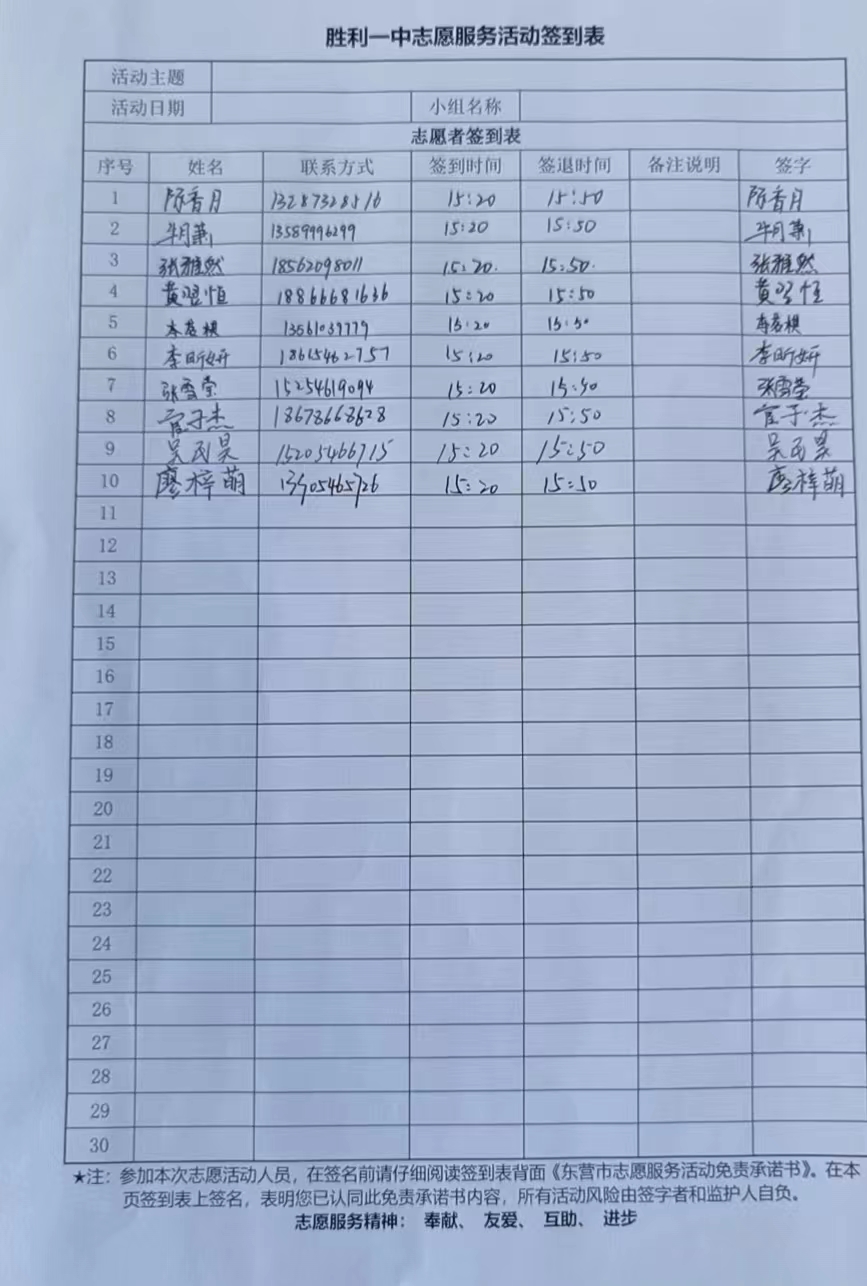 胜利一中志愿服务活动签到表
活动主题
活动日期 小组名称
志愿者签到表
序号 姓名 联系方式 签到时间 签退时间 备注说明 签字
1 陈香月 13287328516 15:20 15:50 陈香月
2 13589996299 15:20 15:50
3 张雅然 18562098011 15:20. 15:50. 张雅然
4 黄翌恒 18866681636 15:20 15:50 黄翌恒
5 13561039779 15:20 15:50
6 李昕妍 18615462757 15:20 15:50 李昕妍
7 张雪莹 15254619094 15:20 15:50 张雪莹
8 官子杰 18678668628 15:20 15:50 官子杰
9 吴民昊 15205466715 15:20 15:50 吴民昊
10 廖梓萌 13905465726 15:20 15:50 廖梓萌
11
12
13
14
15
16
17
18
19
20
21
22
23
24
25
26
27
28
29
30
★注：参加本次志愿活动人员，在签名前请仔细阅读签到表背面《东营市志愿服务活动免责承诺书》。在本
页签到表上签名，表明您已认同此免责承诺书内容，所有活动风险由签字者和监护人自负。
志愿服务精神： 奉献、 友爱、 互助、 进步